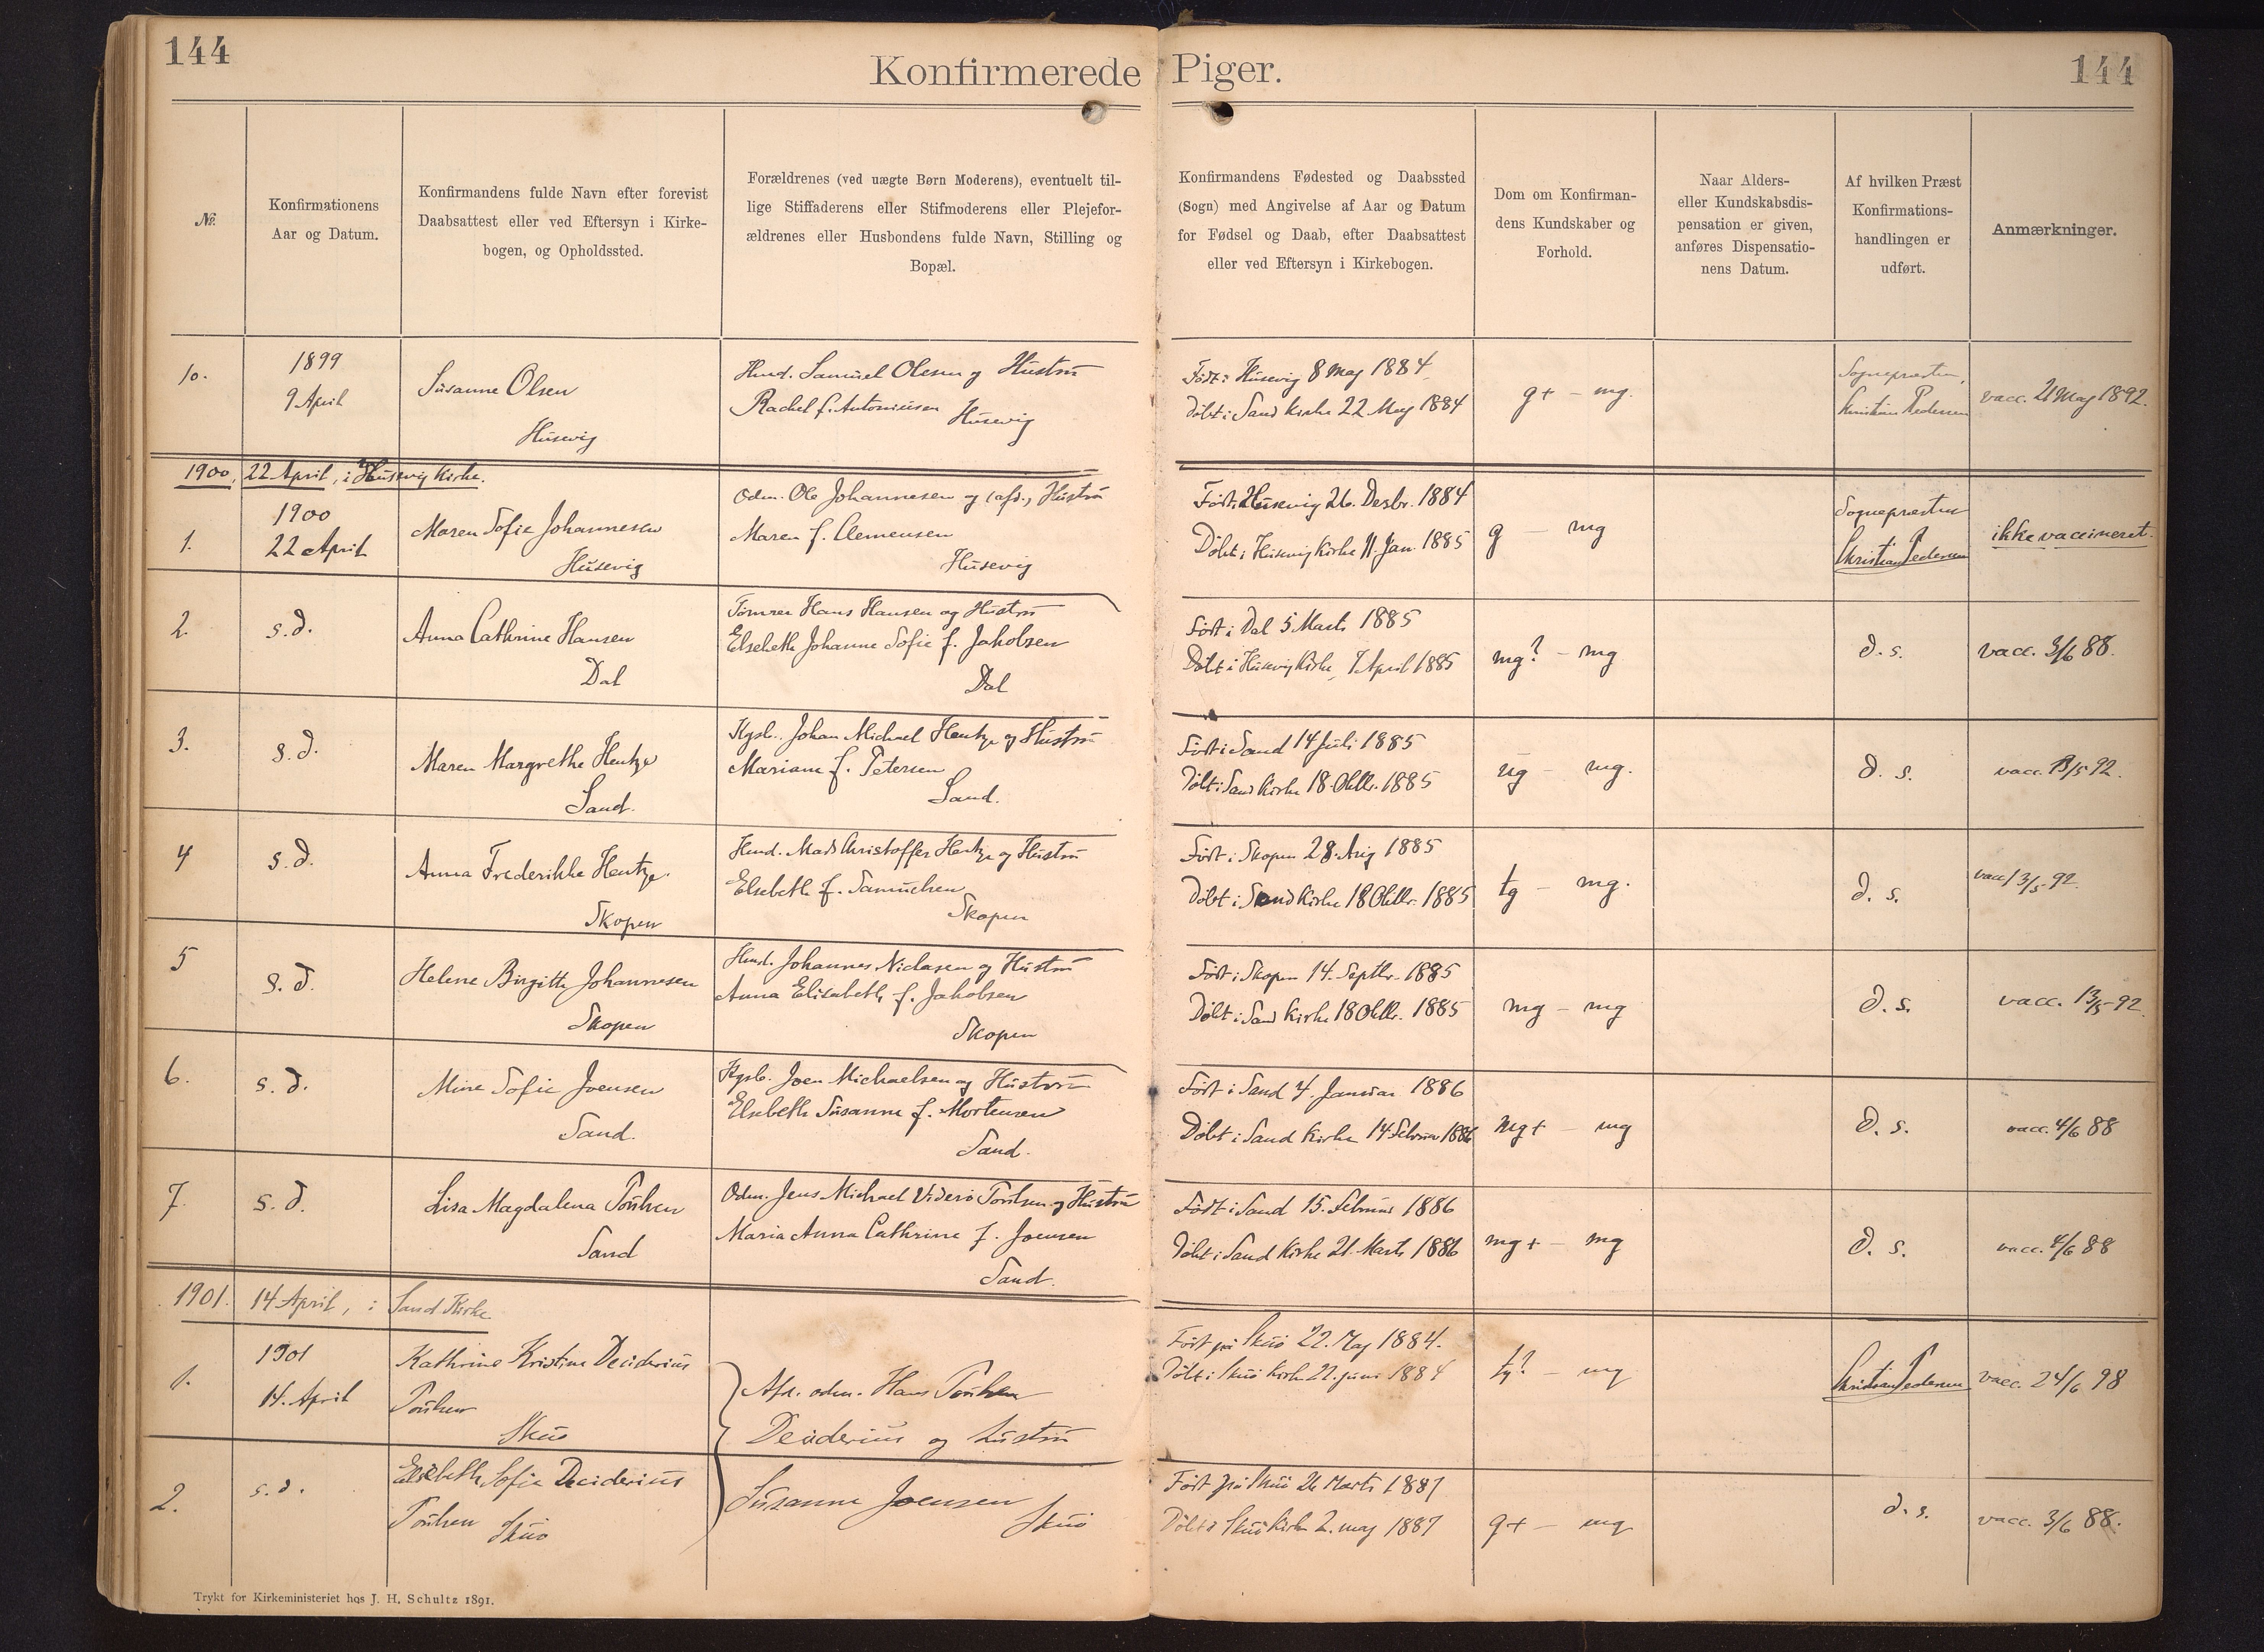 144
Konfirmerede Piger.
144
№.
Konfirmationens
Aar og Datum.
Konfirmandens fulde Navn efter forevist
Daabsattest eller ved Eftersyn i Kirke-
bogen, og Opholdssted.
Forældrenes (ved uægte Børn Moderens), eventuelt til-
lige Stiffaderens eller Stifmoderens eller Plejefor-
ældrenes eller Husbondens fulde Navn, Stilling og
Bopæl.
Konfirmandens Fødested og Daabssted
(Sogn) med Angivelse af Aar og Datum
for Fødsel og Daab, efter Daabsattest
eller ved Eftersyn i Kirkebogen.
Dom om Konfirman-
dens Kundskaber og
Forhold.
Naar Alders-
eller Kundskabsdis-
pensation er given,
anføres Dispensatio-
nens Datum.
Af hvilken Præst
Konfirmations-
handlingen er
udført.
Anmærkninger.
10.
1899
9 April
Susanne Olsen
Husevig
Hmd. Samuel Olesen og Hustru
Rachel f. Antoniusen
Husevig
Født i Husevig 8 Maj 1884
Døbt i Sand Kirke 22 Maj 1884
g+ - mg.
Sognepræsten,
Kristian Pedersen
vacc. 21 Maj 1892.
1900, 22 April, i Husevig Kirke.
1.
1900
22 April
Maren Sofie Johannesen
Husevig
Odm. Ole Johannesen og (afd.) Hustru
Maren f. Clemensen
Husevig
Født i Husevig 26. Desbr. 1884
Døbt i Husevig Kirke 11. Jan. 1885
g - mg
Sognepræsten
Kristian Pedersen
ikke vaccineret.
2.
s.d.
Anna Cathrine Hansen
Dal
Tømrer Hans Hansen og Hustru
Elsebeth Johanne Sofie f. Jakobsen
Dal
Født i Dal 5 Marts 1885
Døbt i Husevig Kirke, 7 April 1885
mg? - mg
d. s.
vacc. 3/6 88.
3.
s.d.
Maren Margrethe Hentze
Sand.
Kgsb. Johan Michael Hentze og Hustru
Mariane f. Petersen
Sand.
Født i Sand 14 Juli 1885
Døbt i Sand Kirke 18. Oktbr. 1885
ug - mg.
d. s.
vacc. 13/5 92.
4
s.d.
Anna Frederikke Hentze.
Skopen
Hmd. Mads Christoffer Hentze og Hustru
Elsebeth f. Samuelsen
Skopen
Født i Skopen 28. Aug 1885
Døbt i Sand Kirke 18 Oktbr. 1885
tg - mg.
d. s.
vacc 13/5 92.
5
s. d.
Helene Birgitte Johannesen
Skopen
Hmd. Johannes Niclasen og Hustru
Anna Elisabeth f. Jakobsen
Skopen
Født i Skopen 14. Septbr. 1885
Døbt i Sand Kirke 18 Oktbr. 1885
mg - mg
d. s.
vacc. 13/5 92.
6.
s. d.
Mine Sofie Joensen
Sand.
Kgsb. Joen Michaelsen og Hustru
Elsebeth Susanne f. Mortensen
Sand.
Født i Sand 4. Januar 1886
Døbt i Sand Kirke 14 Februar 1886
mg+ - mg
d. s.
vacc. 4/6 88
7.
s. d.
Lisa Magdalena Poulsen
Sand
Odm. Jens Michael Viderø Poulsen og Hustru
Maria Anna Cathrine f. Joensen
Sand.
Født i Sand 15. Februar 1886
Døbt i Sand Kirke 21. Marts 1886
mg+ - mg
d. s.
vacc. 4/6 88
1901. 14 April, i Sand Kirke.
1.
1901
14. April
Kathrine Kristine Deciderius
Poulsen
Skuø
Afd. odm. Hans Poulsen
Deciderius og hustru
Susanne Joensen
Skuø
Født på Skuø 22. Maj 1884.
Døbt i Skuø Kirke 22. juni 1884
tg? - mg
Kristian Pedersen
vacc. 24/6 98
2.
s. d.
Elsebeth Sofie Deciderius
Poulsen Skuø
Født på Skuø 26 Marts 1887
Døbt i Skuø Kirke 2. maj 1887
g+ - mg
d. s.
vacc. 3/6 88.
Trykt for Kirkeministeriet hos J. H. Schultz 1891.